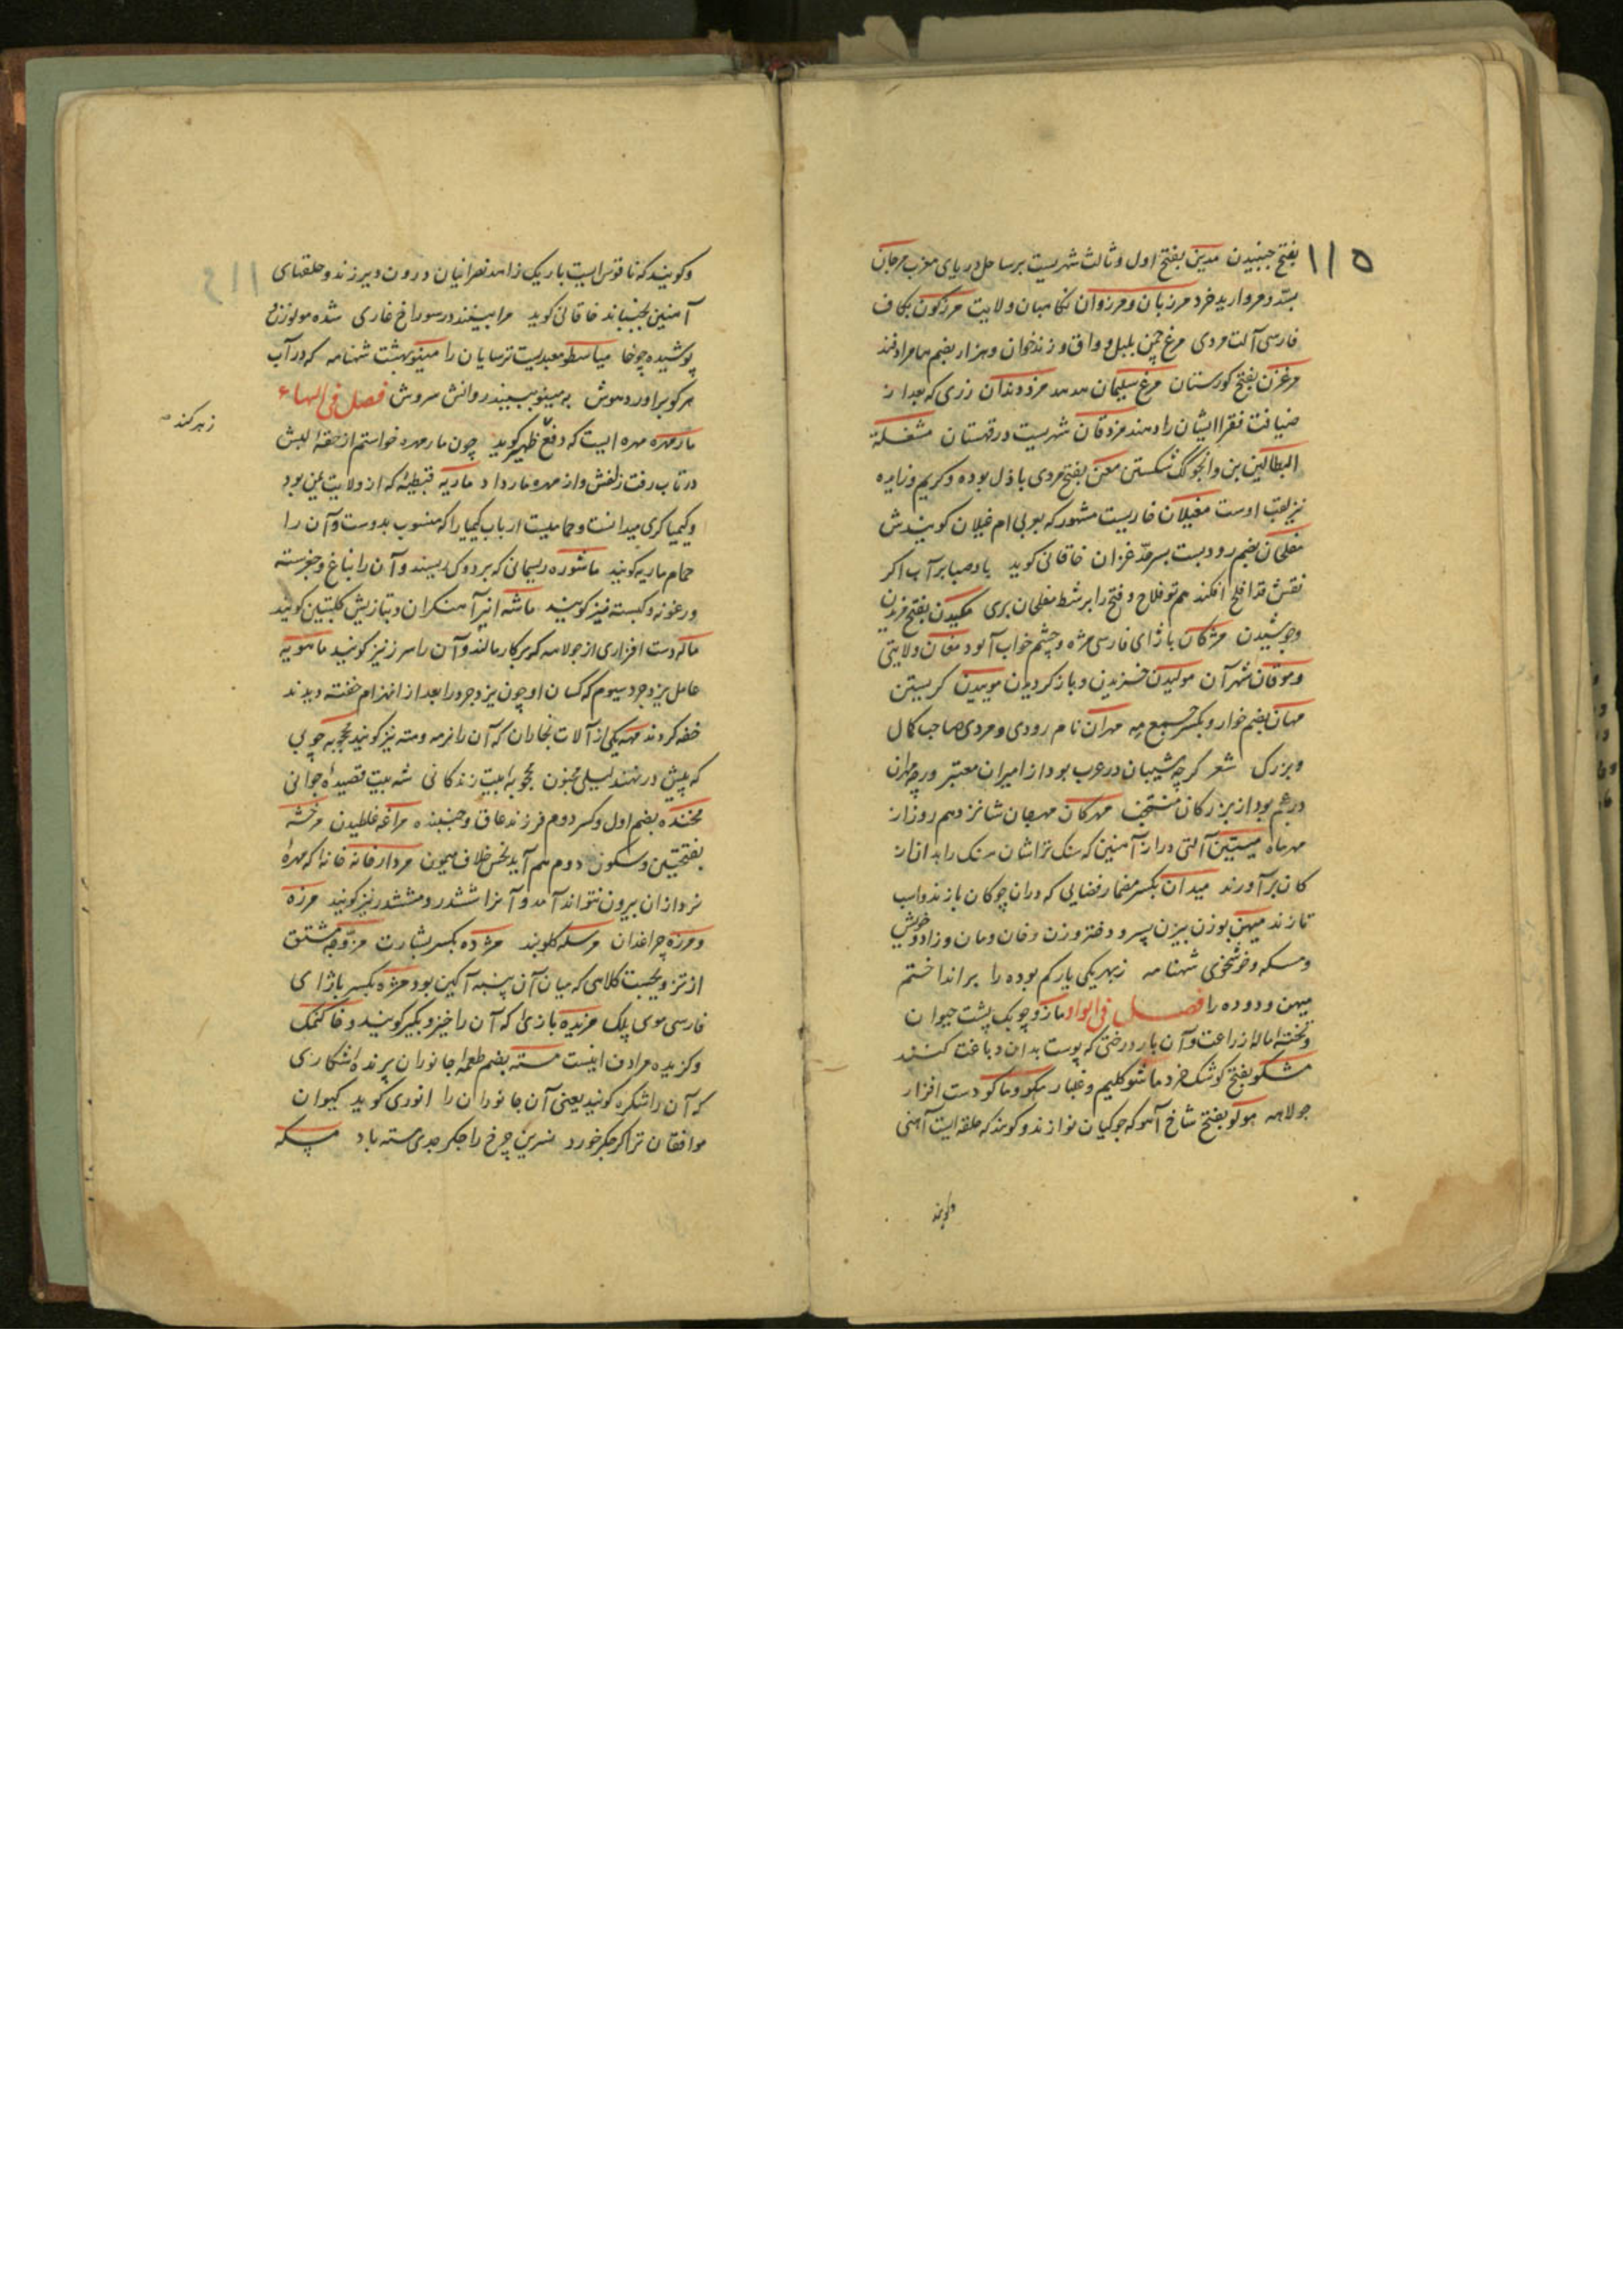 ١١٥
بفتح جنبیدن مدین بفتح اول وثالث شهریست برساحل دریای مغرب مرجان
بسد ومروارید خرد مرزبان ومرزوان نکاهبان ولایت مرزکون بکاف
فارسی آلت مردی مرغ چمن بلبل وواق وزندخوان وهزار بضم مرادفند
مرغزن بفتح کورستان مرغ سلیمان هدهد مزد دندان زری که بعد از
ضیافت فقرا ایشان را دهند مزدقان شهریست در قهستان مشغلة
البطالین بن وانجوکک شکستن معن بفتح مردی باذل بوده وکریم وزایده
نیز لقب اوست مغیلان خاریست مشهور که بعربی ام غیلان کویندش
مغلجان بضم رودیست بسرحد غزان خاقانی کوید باد صبا بر آب اکر
نقش قد افلح افکند هم تو فلاح وفتح را بر شط مغلجان بری مکیدن بفتح مزیدن
وجوشیدن مژکان بازای فارسی مژه وچشم خواب آلود مغان ولایتی
وموقان شهر آن مولیدن خزیدن وباز کردیدن موییدن کریستن
مهان بضم خوار وبکسر جمع مه مهران نام رودی ومردی صاحب کمال
وبزرک شعر کرچه شیبان در عرب بود از امیران معتبر ورچه مهران
در عجم بود از بزرکان منتجب مهرکان مهرجان شانزدهم روز از
مهرماه میتین آلتی دراز آهنین که سنک تراشان سنک را بدان از
کان برآورند میدان بکسر مضمار فضایی که دران چوکان بازند واسب
تازند میهن بوزن بیزن پسر ودختر وزن وخان ومان وزاد وخویش
ومسکه وخوشخوی شهنامه زبهر یکی یار کم بوده را برانداختم
میهن ودوده را فصل فی الواو مازو چوبک پشت حیوان
وتخته ماله زراعت وآن بار درختی که پوست بدان دباغت کنند
مشکو بفتح کوشک خرد ماشو کلیم وغلبار مکو وماکو دست افزار
جولاهه مولو بفتح شاخ آهو که جوکیان نوازند وکویند که حلقه ایست آهنی
وکویند
وکویند که ناقوس ایست باریک زاهد نصرانیان درون دیر زند وحلقهای
آهنین بجنباند خاقانی کوید مرا بینند در سوراخ غاری شده مولوزن و
پوشیده چوخا میاسطو معبدیست ترسایان را مینو بهشت شهنامه که در آب
هر کو براوردهوش به مینو ببیند روانش سروش فصل فی الهاء
مارمهره مهره ایست که دفع ظهیر کوید چون مارمهره خواستم از حقه لبش
زهر کند
در تاب رفت زلفش واز مهره مار داد ماریه قبطیه که از ولایت یمن بود
وکیمیاکری میدانست وحمامیست ارباب کیمیا را که منسوب بدوست وآن را
حمام ماریه کویند ماشوره ریسمانی که بر دوک ریسند وآن را
ماشه انبر آهنکران وبتازیش کلبتین کویند
ماله دست افزاری از جولاهه که بر کار مالند وآن را
ماهویه
عامل یزدجرد سیوم که کسان او چون یزدجرد را بعد از انهزام خفته دیدند
خفه کردند مهه یکی از آلات نجاران که آن را نرمه ومته نیز کویند
که پیش در نهند لیلی مجنون
مخنده بضم اول وکسر دوم فرزند عاق وجنبنده مراغه غلطیدن مرخشه
بفتحتین وسکون دوم هم آید نحس خلاف میمون مردارخانه خانه که مهره
نرد ازان بیرون نتواند آمد وآنرا ششدر ومششدر نیز کویند مرزه
ومرزه چراغدان مرسله کلوبند مژده بکسر بشارت مزوجه مشتق
از تزویجست کلاهی که میان آن پنبه آکین بود مژه بکسر بازای
فارسی موی پلک مزیده بازی که آن را خیز وبکیر کویند
وکزیده مرادف اینست مسته بضم طعمه جانوران پرنده شکاری
که آن را شکره کویند یعنی آن جانوران را انوری کوید کیوان
موافقان ترا کر جکر خورد نسرین چرخ را جکر جدی مسته باد مسکه